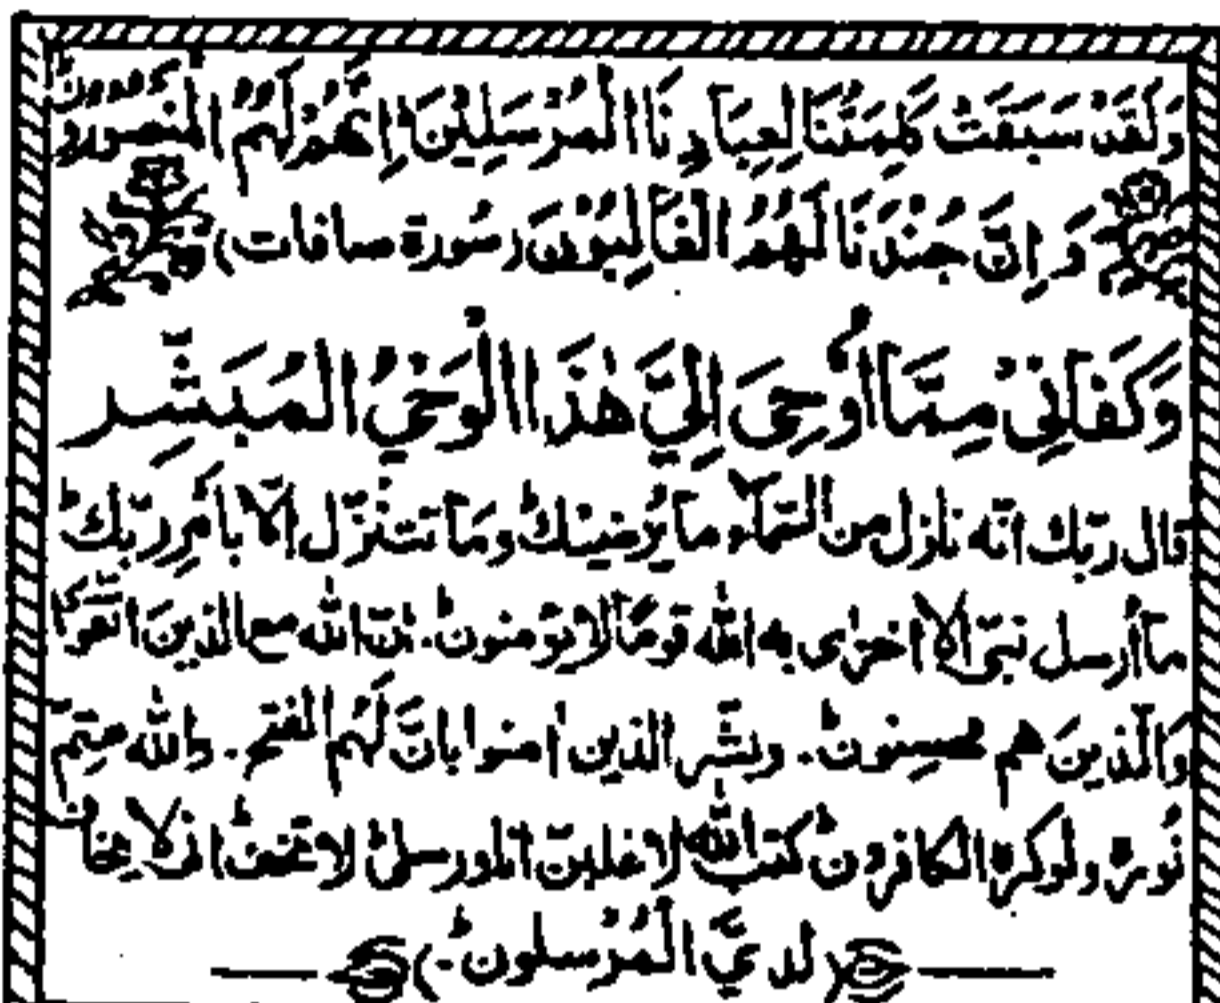 وَلَقَدْ سَبَقَتْ كَلِمَتُنَا لِعِبَادِنَا الْمُرْسَلِيْنَ اِنَّهُمْ لَهُمُ الْمَنْصُوْرُوْنَ
وَ اِنَّ جُنْدَنَا لَهُمُ الْغَالِبُوْنَ (سُورة صافات)
وَكَفَانِيْ مِمَّا أُوْحِىَ اِلَيَّ هٰذَا الْوَحْيُ المُبَشِّر
قال ربّك انّه نازل من السّمآء ما يُرضيْك وَمَا نتنزّل الّا بامْرِ ربّك
مآ أُرسل نبيّ الّا اخزٰى به اللّٰه قومًا لا يؤمنون. انّ اللّٰه مع الذينَ اتّقَوا
وَالّذينَ هم محسِنون. وبشّر الذين اٰمنوا بانَّ لَهُم الفتح. واللّٰه مِتمّ
نُوره ولو كرِه الكافرون كتب اللّٰه لاغلبنّ انا ورسلي لا تخف انّي لا يخاف
(لديَّ الْمُرْسلون.)